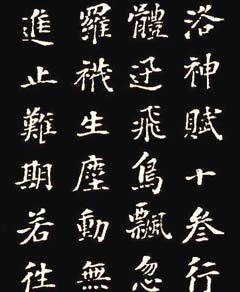 洛神賦十叁行
體迅飛鳥飄忽
羅襪生塵動無
進止難期若往